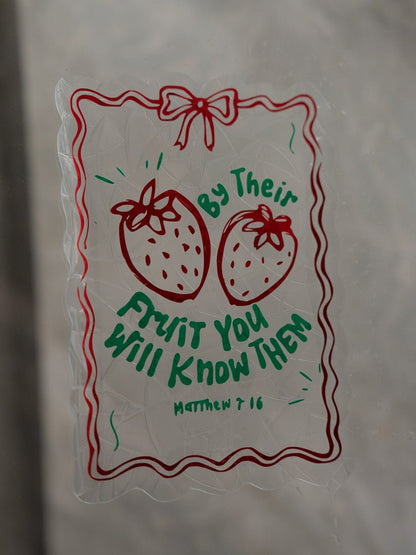 By Their
Fruit You
Will Know Them
Matthew 7 16